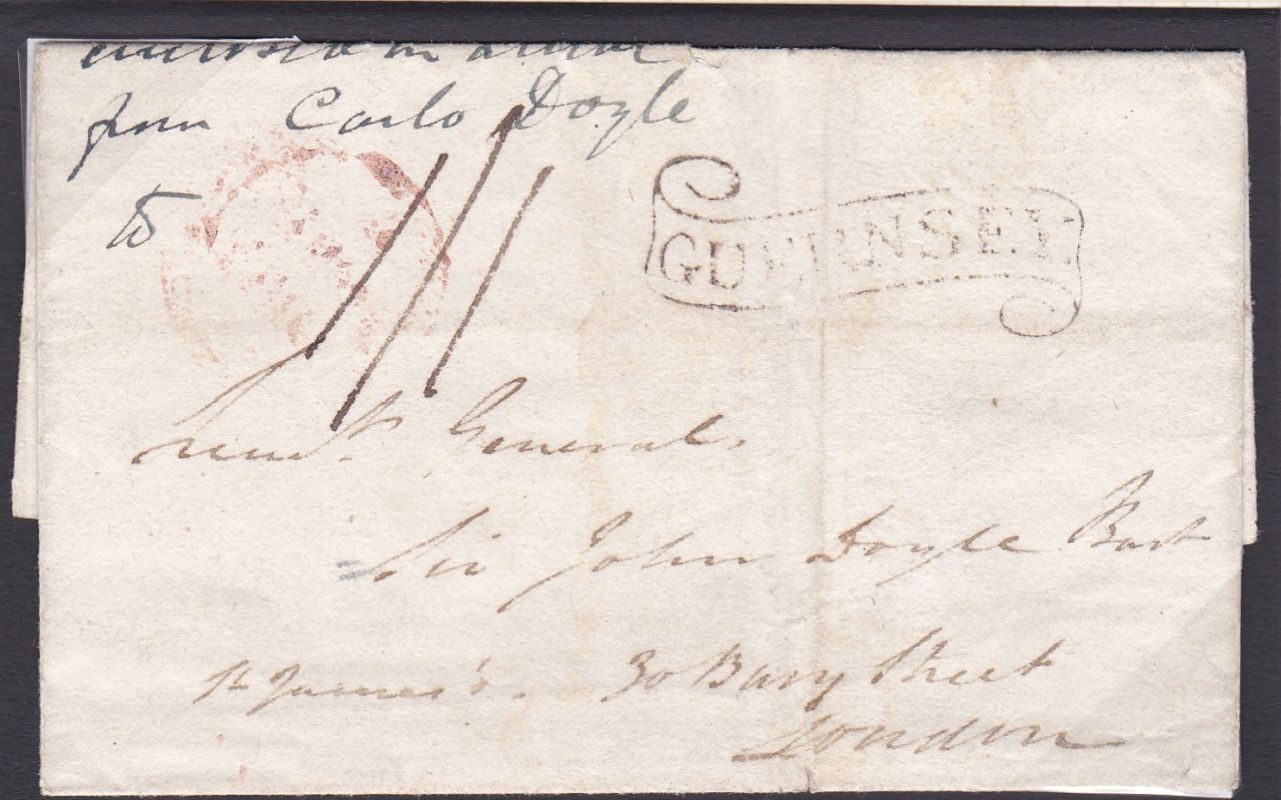 enclosed in a letter
from Carlo Doyle
to
GUERNSEY
Lieut. General
Sir John Doyle Bart
St James's. 30 Bury Street
London